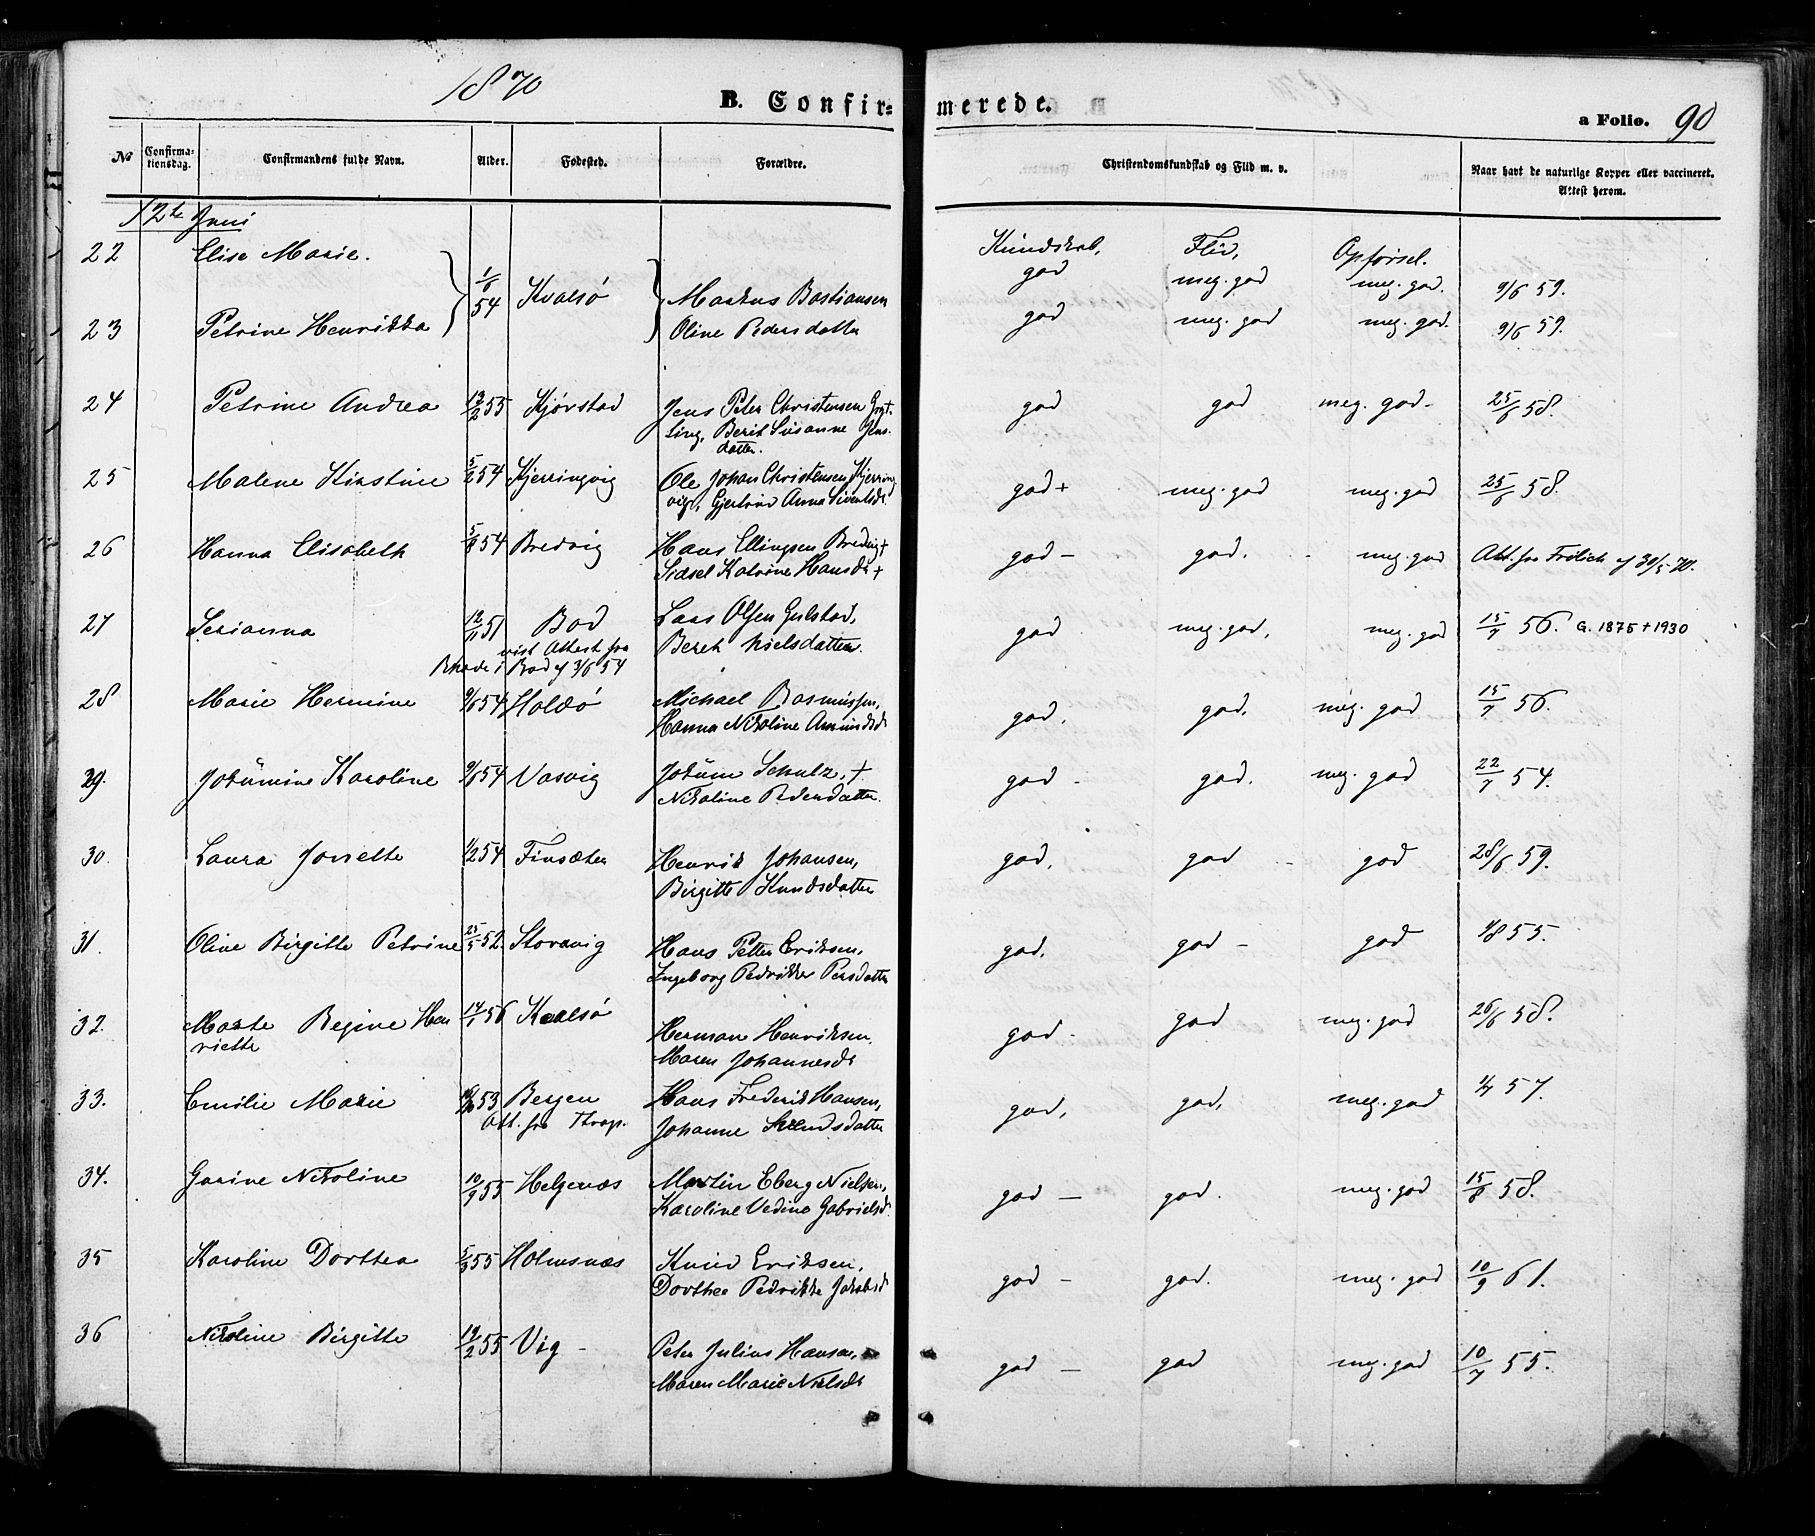 1870
B. Confirmerede.
a Folio. 90
No Confirmationsdag. Confirmandens fulde Navn. Alder. Fødested. Forældre. Christendomskundskab og Flid m. v. Naar havt de naturlige Kopper eller vaccineret. Attest herom.
12te Juni
Kundskab, Flid, Opførsel.
22 Elise Marie. 1/6 54 Kvalsø Markus Bastiansen god meg. god meg. god. 9/6 59.
23 Petrine Henrikka Oline Pedersdatter god meg. god meg. god. 9/6 59.
24 Petrine Andrea 13/2 55 Kjørstad Jens Peter Christensen god god meg. god - 25/6 58.
ling, Berit Susanne Jens-
datter.
25 Malene Kirstine 5/2 54 Kjerringvig Ole Johan Christensen Kjerring god+ meg. god meg. god 25/6 58.
vig, Gjertrud Anna Sivertsd.
26 Hanna Elisabeth 5/8 54 Bredvig Hans Ellingsen Bredvig + god - god. meg. god Att. fra Frölich af 30/5 70.
Sidsel Katrine Hansd. +
27 Serianna 12/11 51 Bod Lars Olsen Gulstad, god meg. god, meg. god 15/7 56. G. 1875 + 1930
vist Attest fra Beret Nielsdatter.
Rhode i Bod af 3/6 54
28 Marie Hermine 9/6 54 Holdø Michael Rasmussen, god. god. meg. god 15/7 56.
Hanna Nikoline Amundsd.
29. Jokumine Karoline 9/6 54 Vasvig Jokum Schulz, + god - god. meg. god 22/7 54.
Nikoline Pedersdatter.
30. Laura Jonette 1/2 54 Finsæter Henrik Johansen, god. god - god 28/6 59.
Birgitte Knudsdatter
31. Oline Birgitte Petrine 25/5 52. Storavig Hans Petter Eriksen, god. god - god 1/8 55.
Ingeborg Pedrikke Persdatter
32. Marte Regine Hen 14/1 56 Kvalsø Herman Henriksen, god - god meg. god 26/6 58.
riette Maren Johannesd.
33. Emilie Marie 53 Bergen Hans Frederik Hansen, god, god, meg. god 57.
Att. fra Johanne Svendsdatter
34. Gurine Nikoline 10/9 55 Helgenæs Martin Eberg Nielsen, god - god. meg. god 15/8 58.
Karoline Vedina Gabrielsd.
35 Karoline Dorthea 5/3 55 Holmsnæs Knud Eriksen, god - god. meg. god 10/9 61.
Dorthea Pedrikke Jakobsd.
36 Nikoline Birgitte 19/2 55 Vig - Peter Julius Hansen, god - god meg. god 10/7 55.
Maren Marie Nielsd.